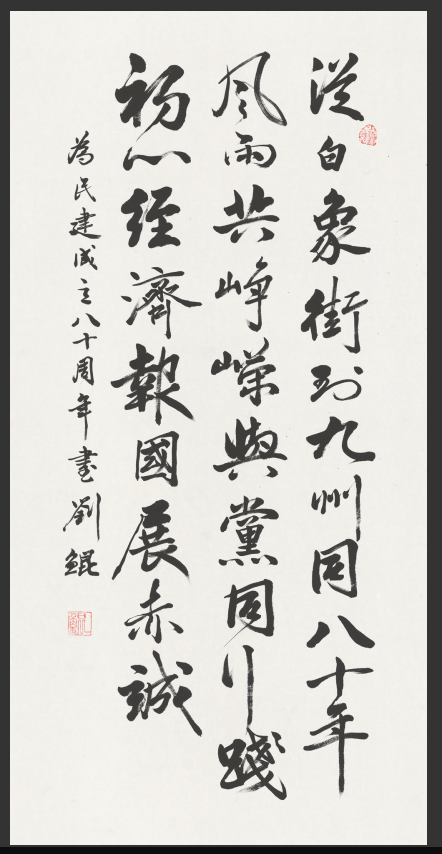 從白象街到九州同八十年
風雨共崢嶸與黨同行踐
初心經濟報國展赤誠
為民建成立八十周年書劉鲲